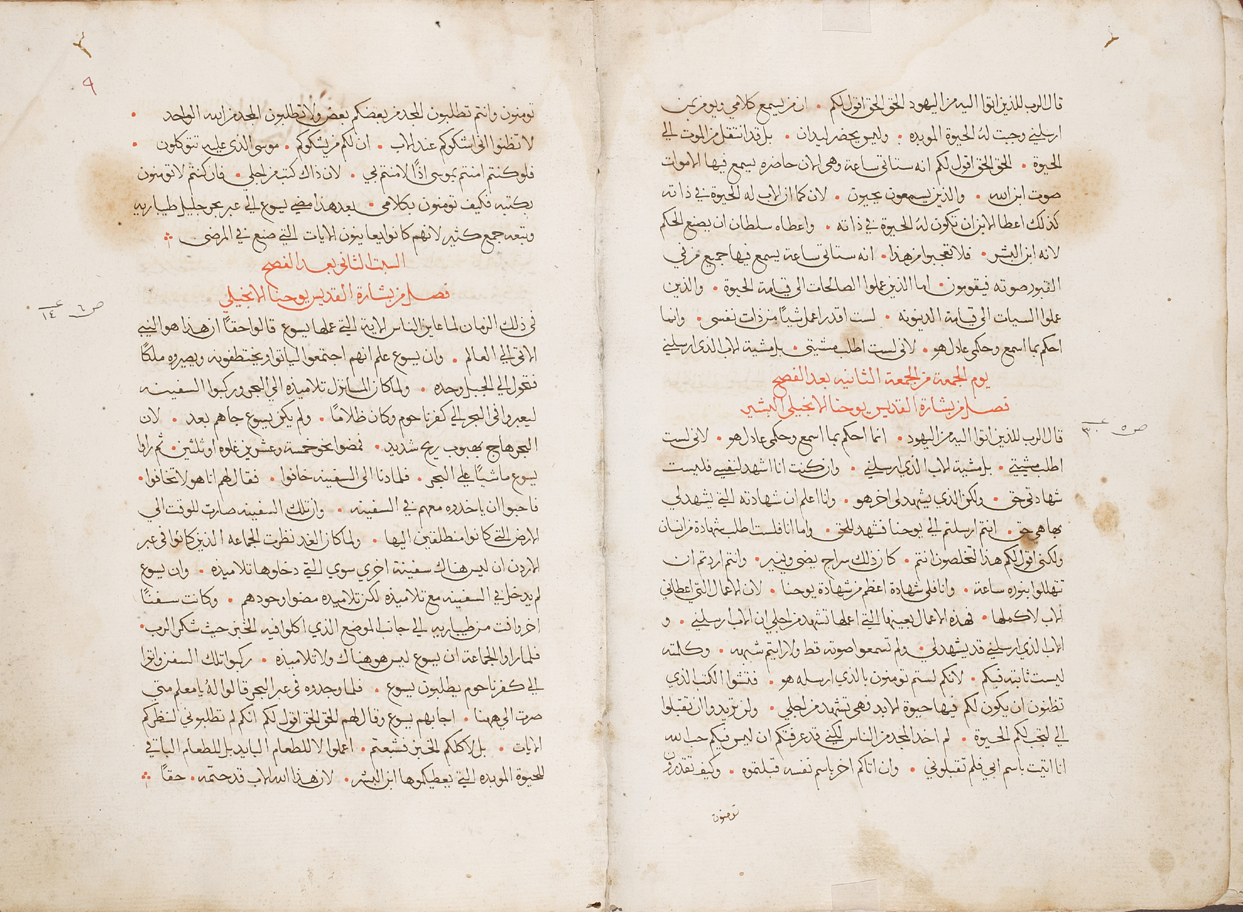 قال الرب للذين اتوا اليه من اليهود الحق الحق اقول لكم • ان من يسمع كلامي ويومن بمن
ارسلني وجبت له الحيوة الموبده • وليس يحضر ليدان • بل قد انتقل من الموت الى
الحيوة • الحق الحق اقول لكم انه ستاتي ساعة وهي الان حاضره يسمع فيها الاموات
صوت ابن الله • والذين يسمعون يحيون • لان كما ان للاب له الحيوة في ذاته
كذلك اعطا الابن ان تكون له الحيوة في ذاته • واعطاه سلطان ان يصنع الحكم
لانه ابن البشر • فلا تعجبوا من هذا • انه ستاتي ساعة يسمع فيها جميع من في
القبور صوته فيقومون • اما الذين عملوا الصالحات الى قيامة الحيوة • والذين
عملوا السيات الى قيامة الدينونه • لست اقدر اعمل شيا من ذات نفسي • وانما
احكم بما اسمع وحكمي عادل هو • لاني لست اطلب مشيتي • بل مشية الاب الذي ارسلني
يوم الجمعة من الجمعة الثانيه بعد الفصح
فصل من بشارة القديس يوحنا الانجيلي البشير
ص ٥ عـ ٣٠
قال الرب للذين اتوا اليه من اليهود • انما احكم بما اسمع وحكمي عادل هو • لاني لست
اطلب مشيتي • بل مشية الاب الذي ارسلني • وان كنت انا اشهد لنفسي فليست
شهادتي حق • ولكن الذي يشهد لي اخر هو • وانا اعلم ان شهادته التي يشهد لي
بها هي حق • انتم ارسلتم الى يوحنا فشهد للحق • واما انا فلست اطلب شهادة من انسان
ولكني اقول لكم هذا لتخلصون انتم • كان ذلك سراج يضي وينير • وانتم اردتم ان
تتهللوا بنوره ساعة • وانا فلي شهادة اعظم من شهادة يوحنا • لان الاعمال التي اعطاني
الاب لاكملها • فهذه الاعمال بعينها التي اعملها تشهد من اجلي ان الاب ارسلني • و
الاب الذي ارسلني قد يشهد لي • ولم تسمعوا صوته قط ولا رايتم شبهه • وكلمته
ليست ثابته فيكم • لانكم لستم تومنون بالذي ارسله هو • فتشوا الكتب الذي
تظنون ان يكون لكم فيها حيوة الابد فهي تشهد من اجلي • ولن تريدوا ان تقبلوا
الى لتجب لكم الحيوة • لم اخد المجد من الناس لكني قد عرفتكم ان ليس فيكم حب الله
انا اتيت باسم ابي فلم تقبلوني • وان اتاكم اخر باسم نفسه قبلتموه • وكيف تقدرون
تومنون
٩
تومنون وانتم تطلبون المجد من بعضكم بعض ولا تطلبون المجد من الله الواحد •
لا تظنوا اني اشكوكم عند الاب • ان لكم من يشكوكم • موسى الذي عليه تتوكلون •
فلو كنتم امنتم بموسى اذًا لامنتم بي • لان ذاك كتب من اجلي • فان كنتم لا تومنون
بكتبه فكيف تومنون بكلامي • بعد هذا مضى يسوع الى عبر بحر جليل طيباريه
وتبعه جمع كثير لانهم كانوا يعاينون الايات التي صنع في المرضى
السبت الثاني بعد الفصح
فصل من بشارة القديس يوحنا الانجيلي
ص ٦ عـ ١٤
في ذلك الزمان لما عاين الناس الايه التي عملها يسوع قالوا حقًا ان هذا هو النبي
الاتي الى العالم • وان يسوع علم انهم اجتمعوا لياتوا ويختطفونه ويصيروه ملكًا
فتحول الى الجبل وحده • ولما كان المسا نزل تلاميذه الى البحر وركبوا السفينه
ليعبروا في البحر الى كفرناحوم وكان ظلامًا • ولم يكن يسوع جاهم بعد • لان
البحر هاج بهبوب ريح شديد • فمضوا نحو خمسة وعشرين غلوه او ثلثين • ثم راوا
يسوع ماشيًا على البحر • فلما دنا الى السفينه خافوا • فقال لهم انا هو لا تخافوا •
فاحبوا ان ياخدوه معهم في السفينه • وان تلك السفينه صارت للوقت الى
الارض التي كانوا منطلقين اليها • ولما كان الغد نظرت الجماعه الذين كانوا في عبر
الاردن ان ليس هناك سفينة اخرى سوى التي دخلوها تلاميذه • وان يسوع
لم يدخل في السفينه مع تلاميذه لكن تلاميذه مضوا وحدهم • وكانت سفنًا
اخر وافت من طيباريه الى جانب الموضع الذي اكلوا فيه الخبز حيث شكر الرب •
فلما راوا الجماعة ان يسوع ليس هو هناك ولا تلاميذه • ركبوا تلك السفن واتوا
الى كفرناحوم يطلبون يسوع • فلما وجدوه في عبر البحر قالوا له يا معلم متى
صرت الى ههنا • اجابهم يسوع وقال لهم الحق الحق اقول لكم انكم لم تطلبوني لنظركم
الايات • بل لاكلكم الخبز فشبعتم • اعملوا لا للطعام البايد بل للطعام الباقي
للحيوة الموبده التي يعطيكموها ابن البشر • لان هذا الله الاب قد ختمه • حقًا